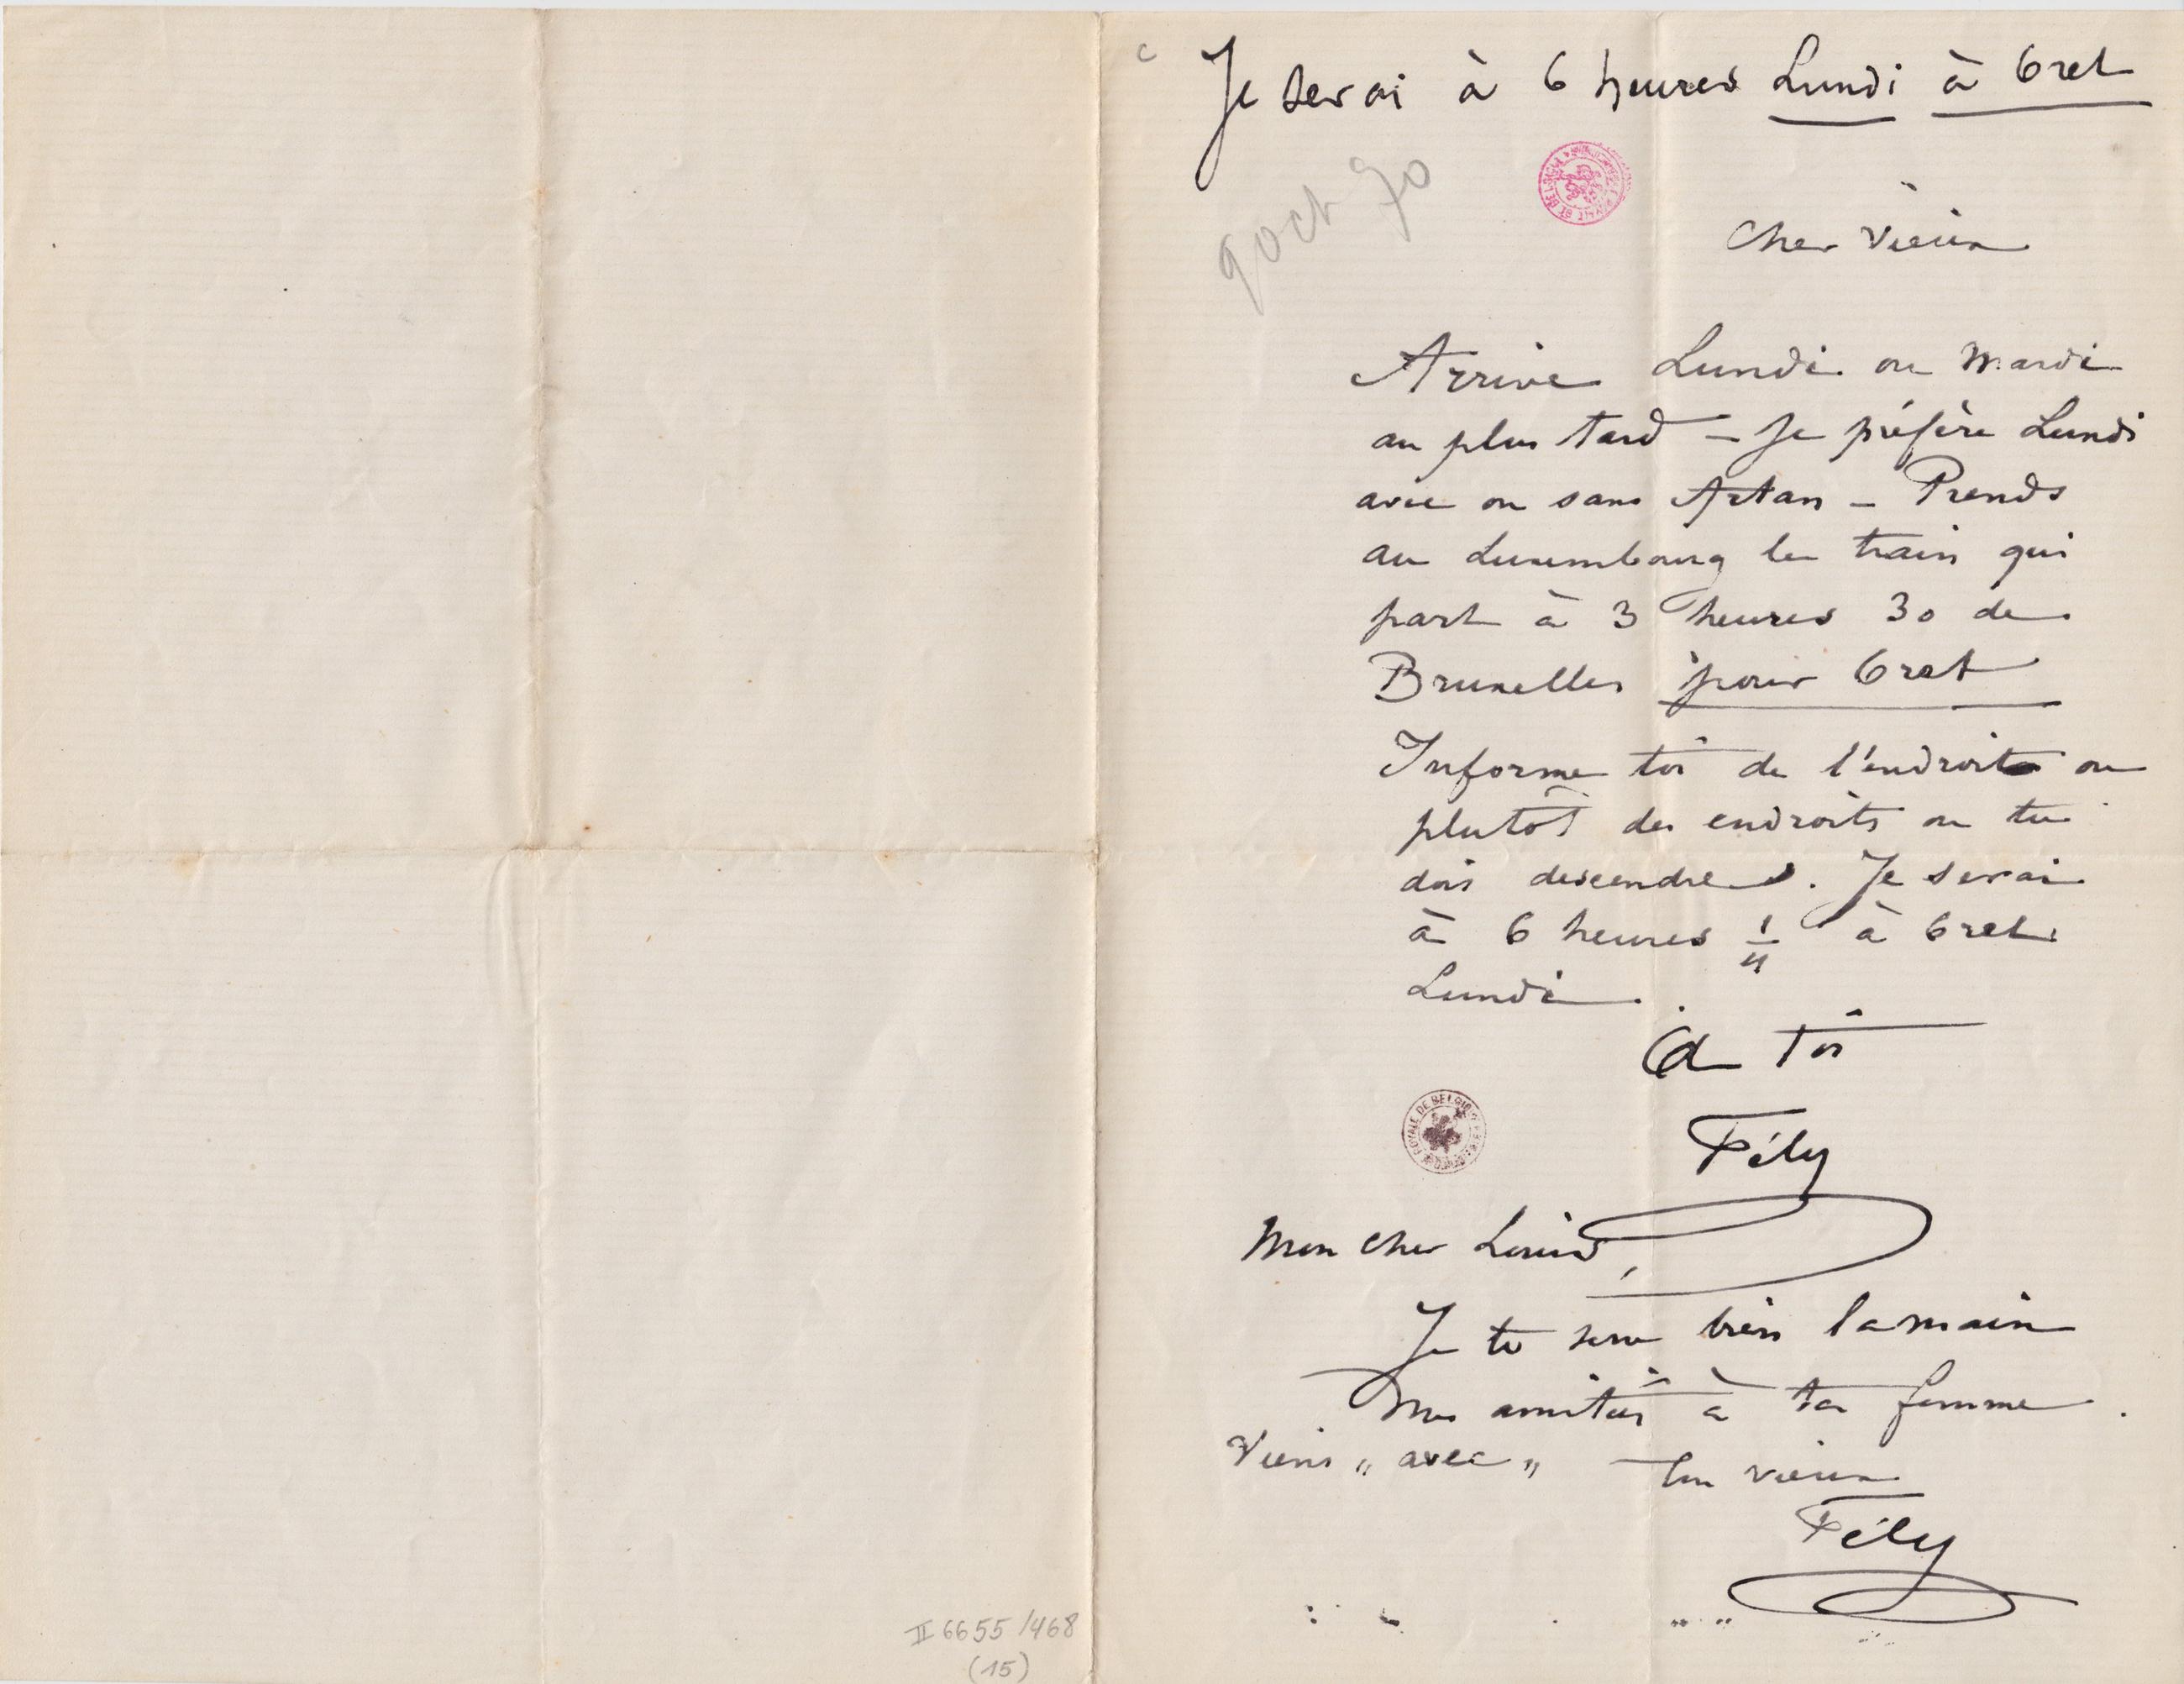 Je serai à 6 heures Lundi à Gret
9 oct 70
Cher Vieux
Arrive Lundi ou Mardi
au plus tard – Je préfère Lundi
avec ou sans Artan – Prends
au Luxembourg le train qui
part à 3 heures 30 de
Bruxelles pour Gret
Informe toi de l'endroit ou
plutôt des endroits ou tu
dois descendre. Je serai
à 6 heures 1/4 à Gret
Lundi.
A Toi
Fély
Mon cher Louis,
Je te serre bien la main
Mes amitiés à ta femme.
Viens „ avec „ Ton vieux
Fély
II 6655/468
(15)